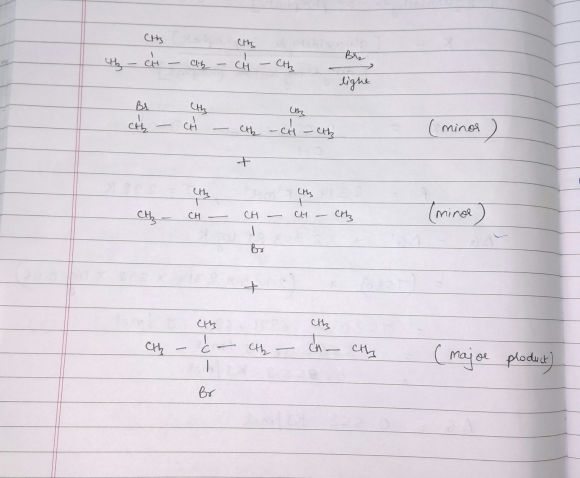 CH3 CH3
CH3 – CH – CH2 – CH – CH3 Br2
light
Br CH3 CH3
CH2 – CH – CH2 – CH – CH3 (minor)
+
CH3 CH3
CH3 – CH – CH – CH – CH3 (minor)
Br
+
CH3 CH3
CH3 – C – CH2 – CH – CH3 (Major product)
Br